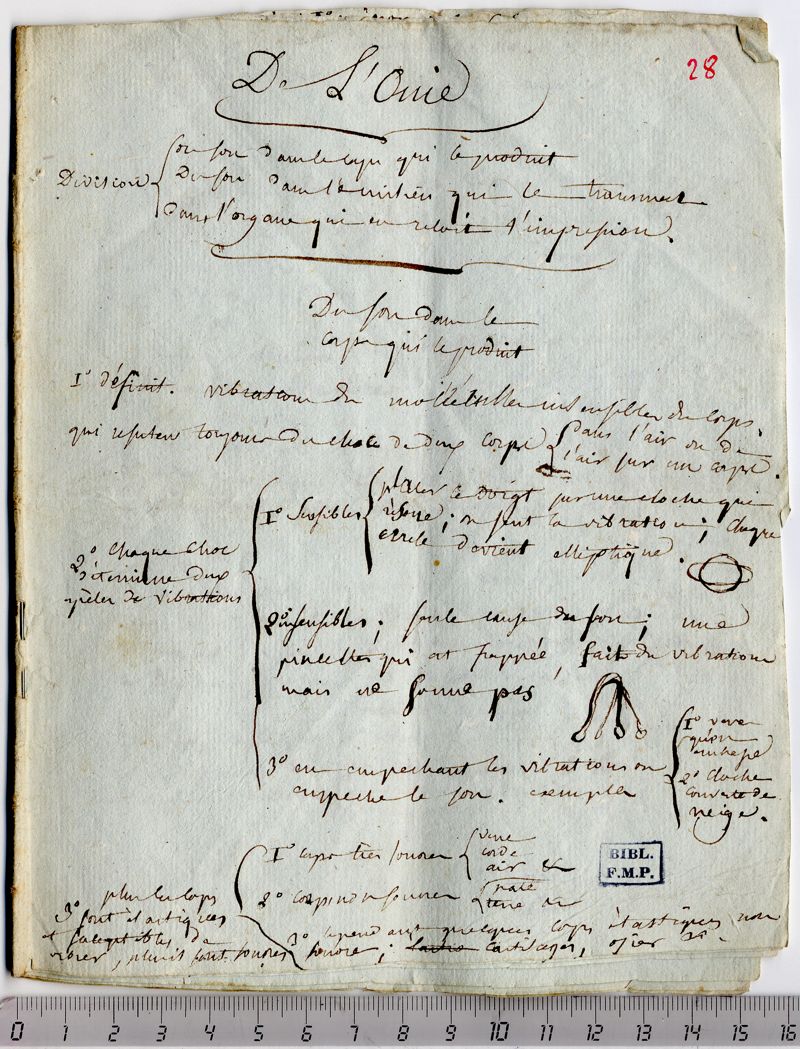 De L'Ouie
28
Division
du son dans le corps qui le produit
Du son dans les milieu qui le transmet
dans l'organe qui en reçoit l'impression.
Du son dans le
corps qui le produit
1° définit. vibrations des molécules insensibles du corps.
qui resulten toujours du choc de deux corps
dans l'air ou de
l'air sur un corps.
2° Chaque choc
détermine deux
de vibrations
1° Sensibles
placer le doigt sur une cloche qui
résone; on sent la vibration; chaque
cercle devient elliptique.
2° insensibles; seule cause du son; une
pincettes qui est frappée, fait des vibrations
mais ne sonne pas
3° en empechant les vibrations on
empeche le son. exemples
1° verre
qu'on
2° cloche
couverte de
neige.
3° plus les corps
sont élastiques
et susceptibles de
, plus ils sont sonores
1° corps tres sonores
verre
corde
air &
2° corps sonores
terre &
3° cependant quelques corps élastiques non
sonores; cartilages, osier &c.
BIBL.
F.M.P.
0 1 2 3 4 5 6 7 8 9 10 11 12 13 14 15 16